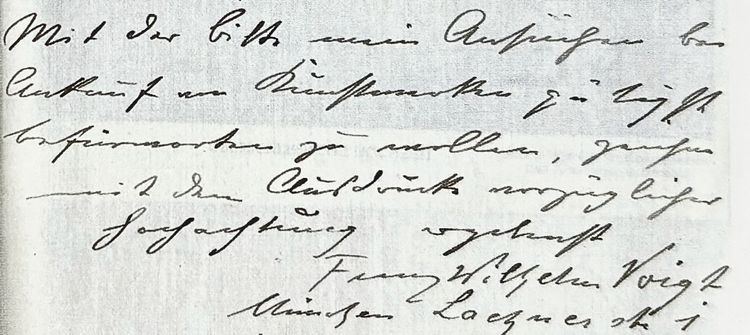 Mit der Bitte mein Ansuchen bei
Ankauf von Kunstwerken gütigst
befürworten zu wollen, zeichne
mit dem Ausdrucke vorzüglicher
Hochachtung ergebenst
Franz Wilhelm Voigt
München Lachnerstr